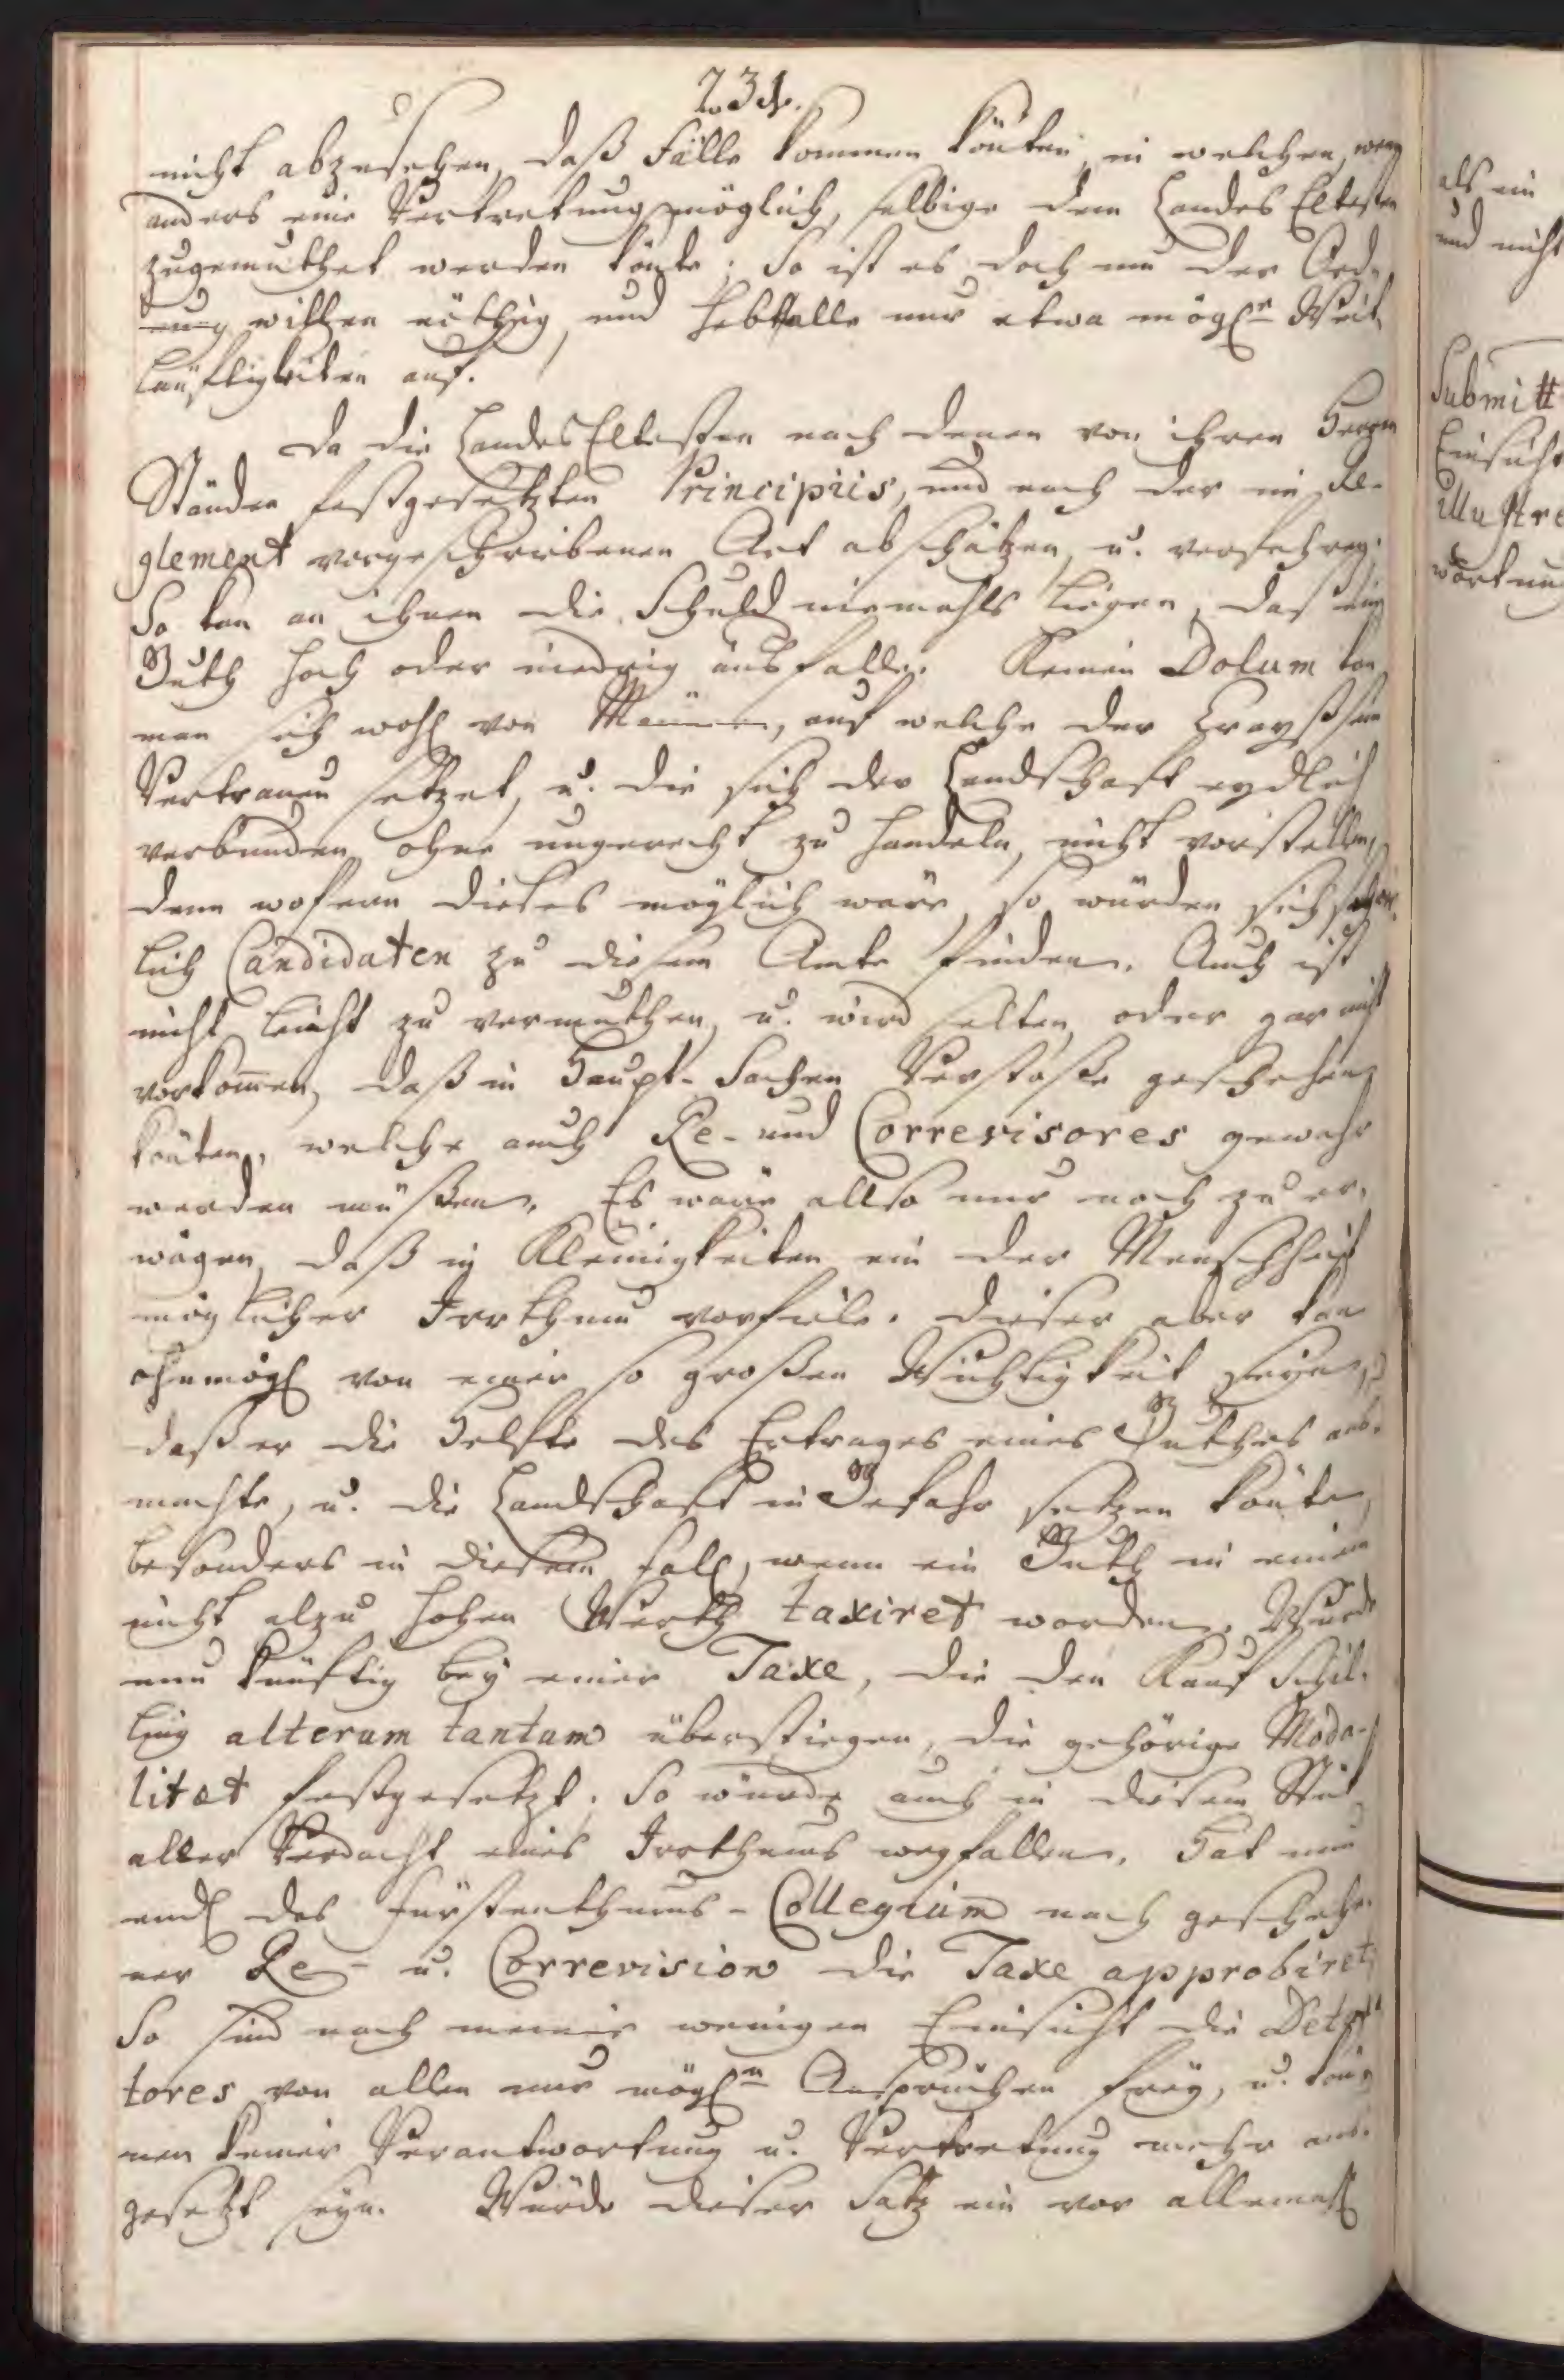 nicht abzusehen, daß Fälle kommen könten, in welchen, wenn
anders eine Vertretung möglich, selbige dem Landes Eltesten
zugemuthet werden könte; So ist es doch um der Ord-
nung willen nöthig, und hebt alle nur etwa mögln Weit
läuftigkeiten auf.
Da die Landes Eltesten nach denen von ihren Herren
Ständen festgesetzten Principiis, und nach der im Re-
glement vorgeschriebenen Art abschätzen, u. verfahren;
So kan an ihnen die Schuld niemahls liegen, daß ein
Guth hoch oder niedrig ausfalle. Keinen Dolum kan
man sich wohl von Männern, auf welche der Krayß sein
Vertrauen setzet, u. die sich der Landschaft eydlich
verbunden, ohne ungerecht zu handeln, nicht vorstellen,
denn wofern dieses möglich wäre, so würden sich
lich Candidaten zu diesem Amte finden. Auch ist
nicht leicht zu vermuthen, u. wird selten oder gar nicht
vorkom̄en, daß in Haupt-Sachen Verstöße geschehen
könten, welche auch Re- und Correvisores gewahr
werden müßen. Es wäre allso nur noch zu er-
wägen, daß in Kleinigkeiten ein der Menschheit
möglicher Irrthum vorfiele. Dieser aber kan
ohnmögl von einer so großen Wichtigkeit seyn,
daß er die Helfte des Ertrages eines Guthes aus-
machte, u. die Landschaft in Gefahr setzen könte,
besonders in diesem Fall, wenn ein Guth in einem
nicht alzu hohen Werth taxiret worden. Würde
nun künftig bey einer Taxe, die den Kauf Schil-
ling alterum tantum überstiegen, die gehörige Moda-
litæt festgesetzt; So würde auch in diesem Stück
aller Verdacht eines Irrthums wegfallen. Hat nun
endl das Fürstenthums-Collegium nach geschehe-
ner Re- u. Correvision die Taxe approbiret;
So sind nach meiner wenigen Einsicht die
tores von allen nur mögln Ansprüchen frey, u. kön-
nen keiner Verantwortung u. Vertretung mehr aus-
gesetzt seyn. Würde dieser Satz ein vor allemahl
als ein
und nicht
Submitt
Einsicht
illustre
wortung